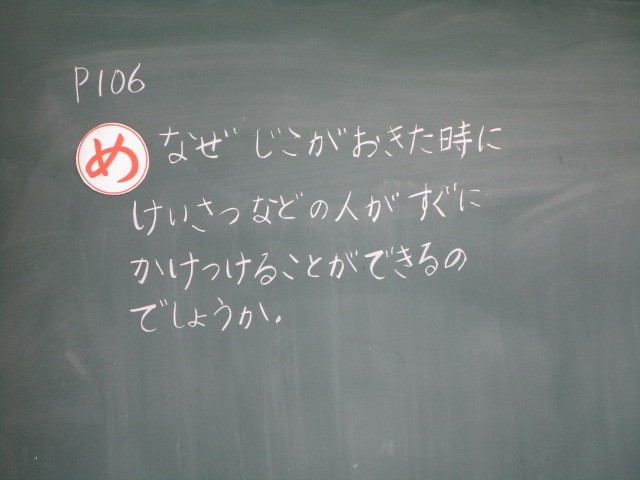 P106
め なぜ じこがおきた時に
けいさつなどの人が すぐに
かけつけることができるの
でしょうか.